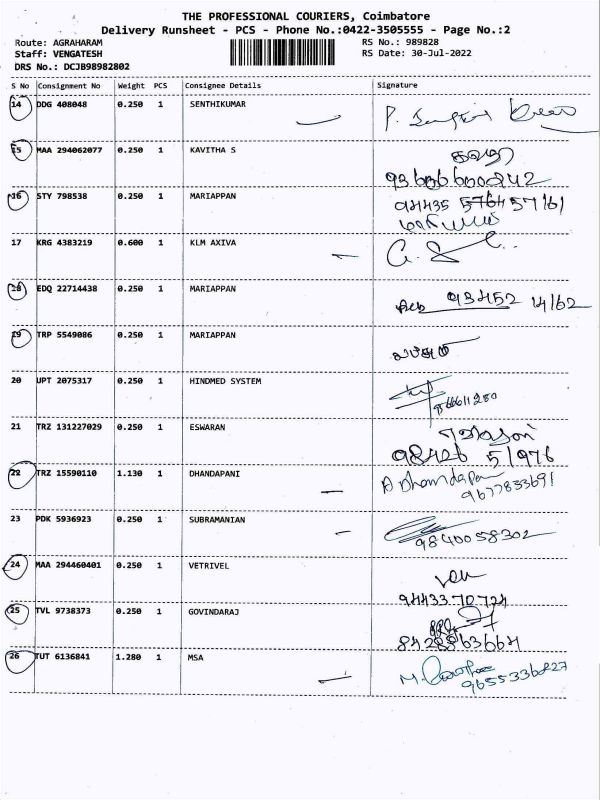 THE PROFESSIONAL COURIERS, Coimbatore
Delivery Runsheet - PCS - Phone No.:0422-3505555 - Page No.:2
Route: AGRAHARAM RS No.: 989828
Staff: VENGATESH RS Date: 30-Jul-2022
DRS No.: DCJB98982802
S No Consignment No Weight PCS Consignee Details Signature
14 DDG 408048 0.250 1 SENTHIKUMAR
15 MAA 294062077 0.250 1 KAVITHA S
16 STY 798538 0.250 1 MARIAPPAN
17 KRG 4383219 0.600 1 KLM AXIVA
18 EDQ 22714438 0.250 1 MARIAPPAN
93452 14162
19 TRP 5549086 0.250 1 MARIAPPAN
20 UPT 2075317 0.250 1 HINDMED SYSTEM
21 TRZ 131227029 0.250 1 ESWARAN
98426 51976
22 TRZ 15590110 1.130 1 DHANDAPANI
9677833691
23 PDK 5936923 0.250 1 SUBRAMANIAN
9840058302
24 MAA 294460401 0.250 1 VETRIVEL
94433 70724
25 TVL 9738373 0.250 1 GOVINDARAJ
8428863664
26 TUT 6136841 1.280 1 MSA